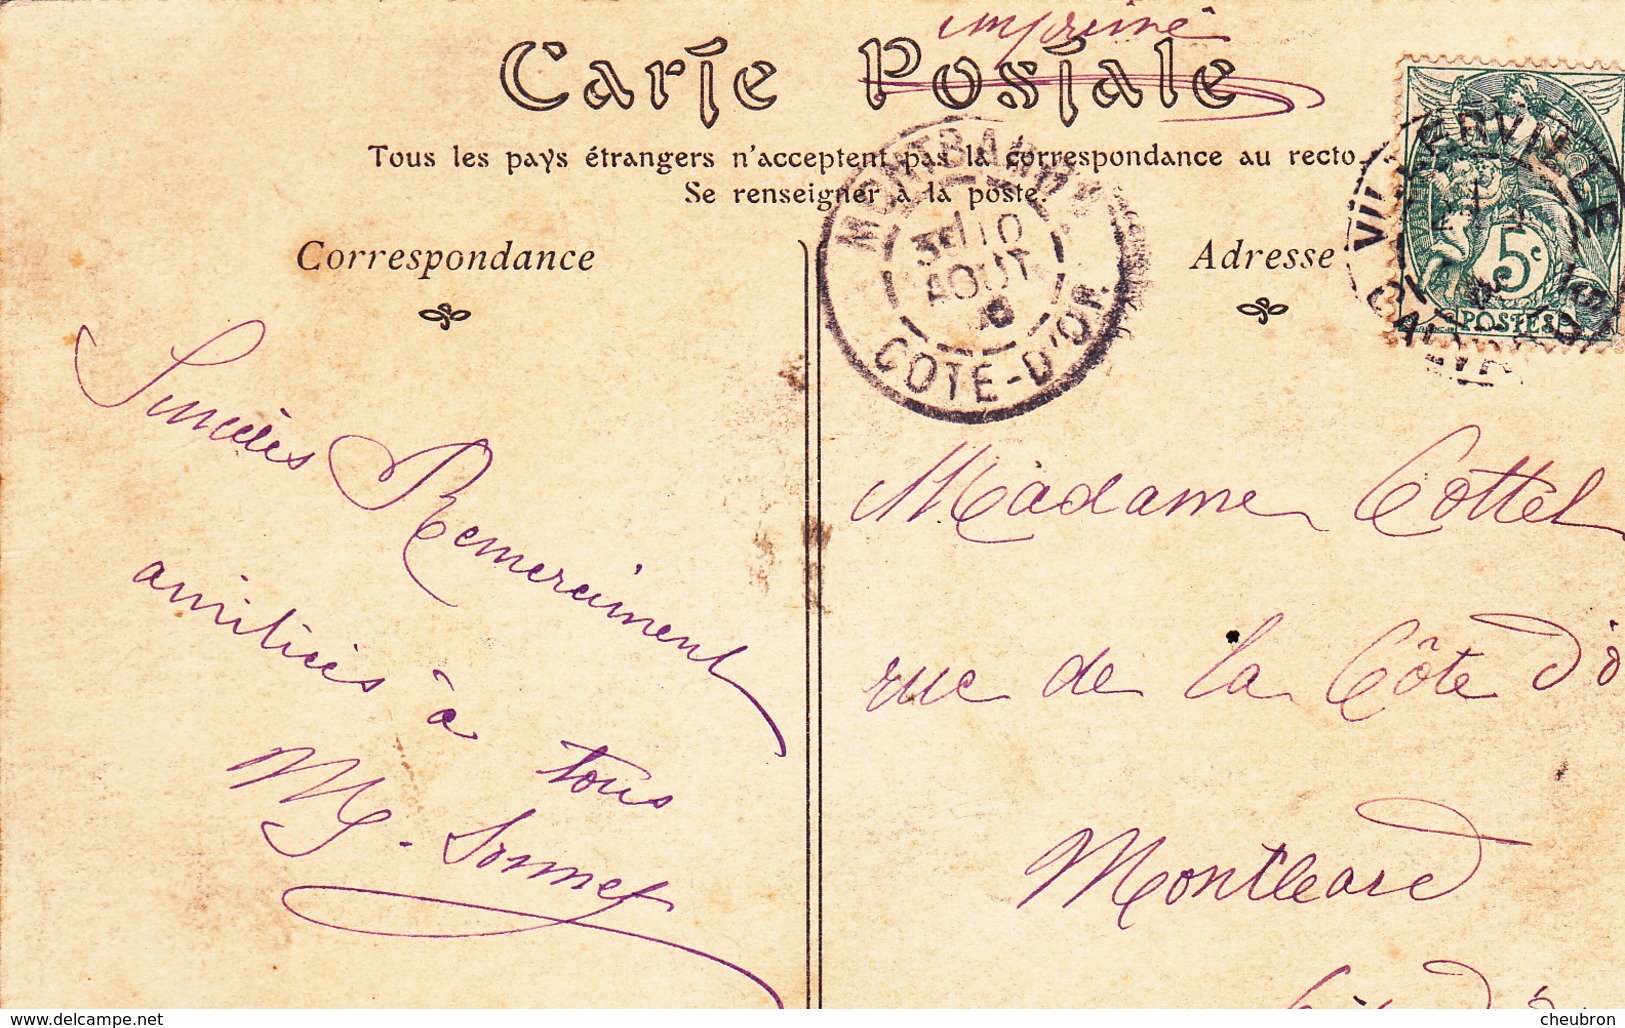 imprimé
Carte Postale
Tous les pays étrangers n'acceptent pas la correspondance au recto.
Se renseigner à la poste.
Correspondance
Sincères Remerciment
amitiés à tous
M G. Sonnet
MONTBARD
3E 10
AOUT
COTE-D'OR
Adresse
VILLERVILLE
5c
POSTES
Madame Cottel
rue de la Côte d'o
Montbard
delcampe.net
cheubron